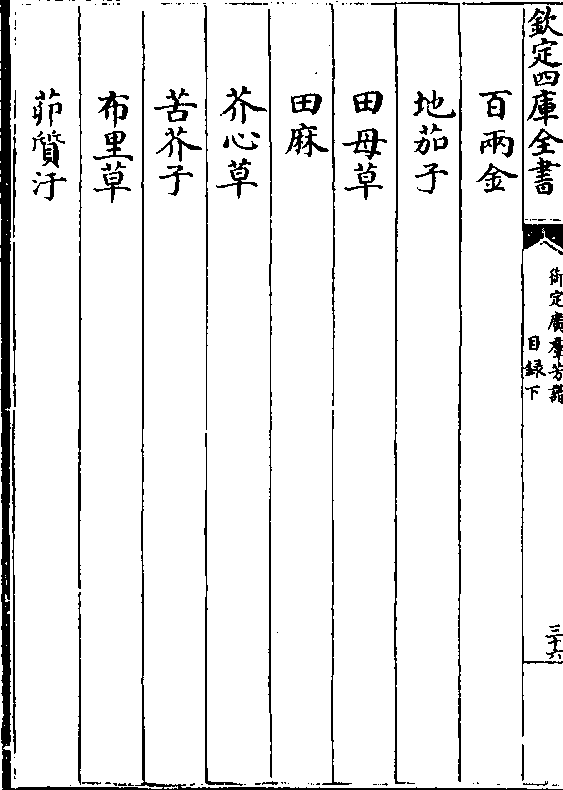 欽定四庫全書
御定廣羣芳譜
目録下
三十六
百兩金
地茄子
田母草
田麻
芥心草
苦芥子
布里草
茆質汗